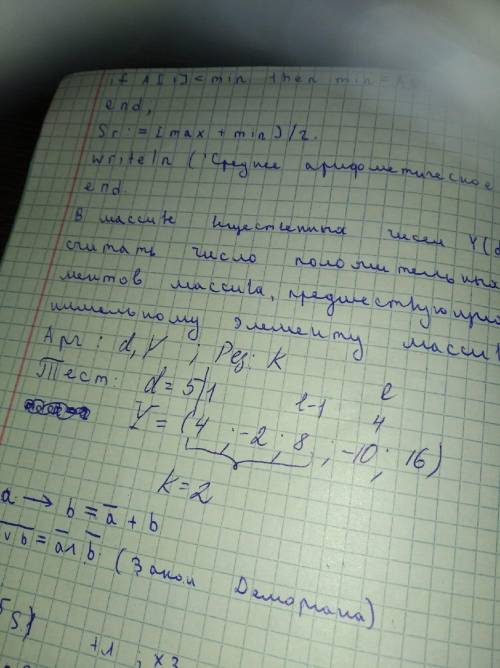 if A[i]<min then min:=A
end;
Sr:=(max+min)/2.
writeln ('Среднее арифметическое
end.
В массиве вещественных чисел Y(d
считать число положительных
ментов массива, предшествующ
нимельному элементу масси
Арг: d, Y ; Рез: K
Тест: d=5
l-1 l
4
Y=(4 ; -2 ; 8 ; -10 ; 16)
K=2
a → b = a̅ + b
v b = a̅ ∧ b̅. (Закон Деморгана)
+1 , x2